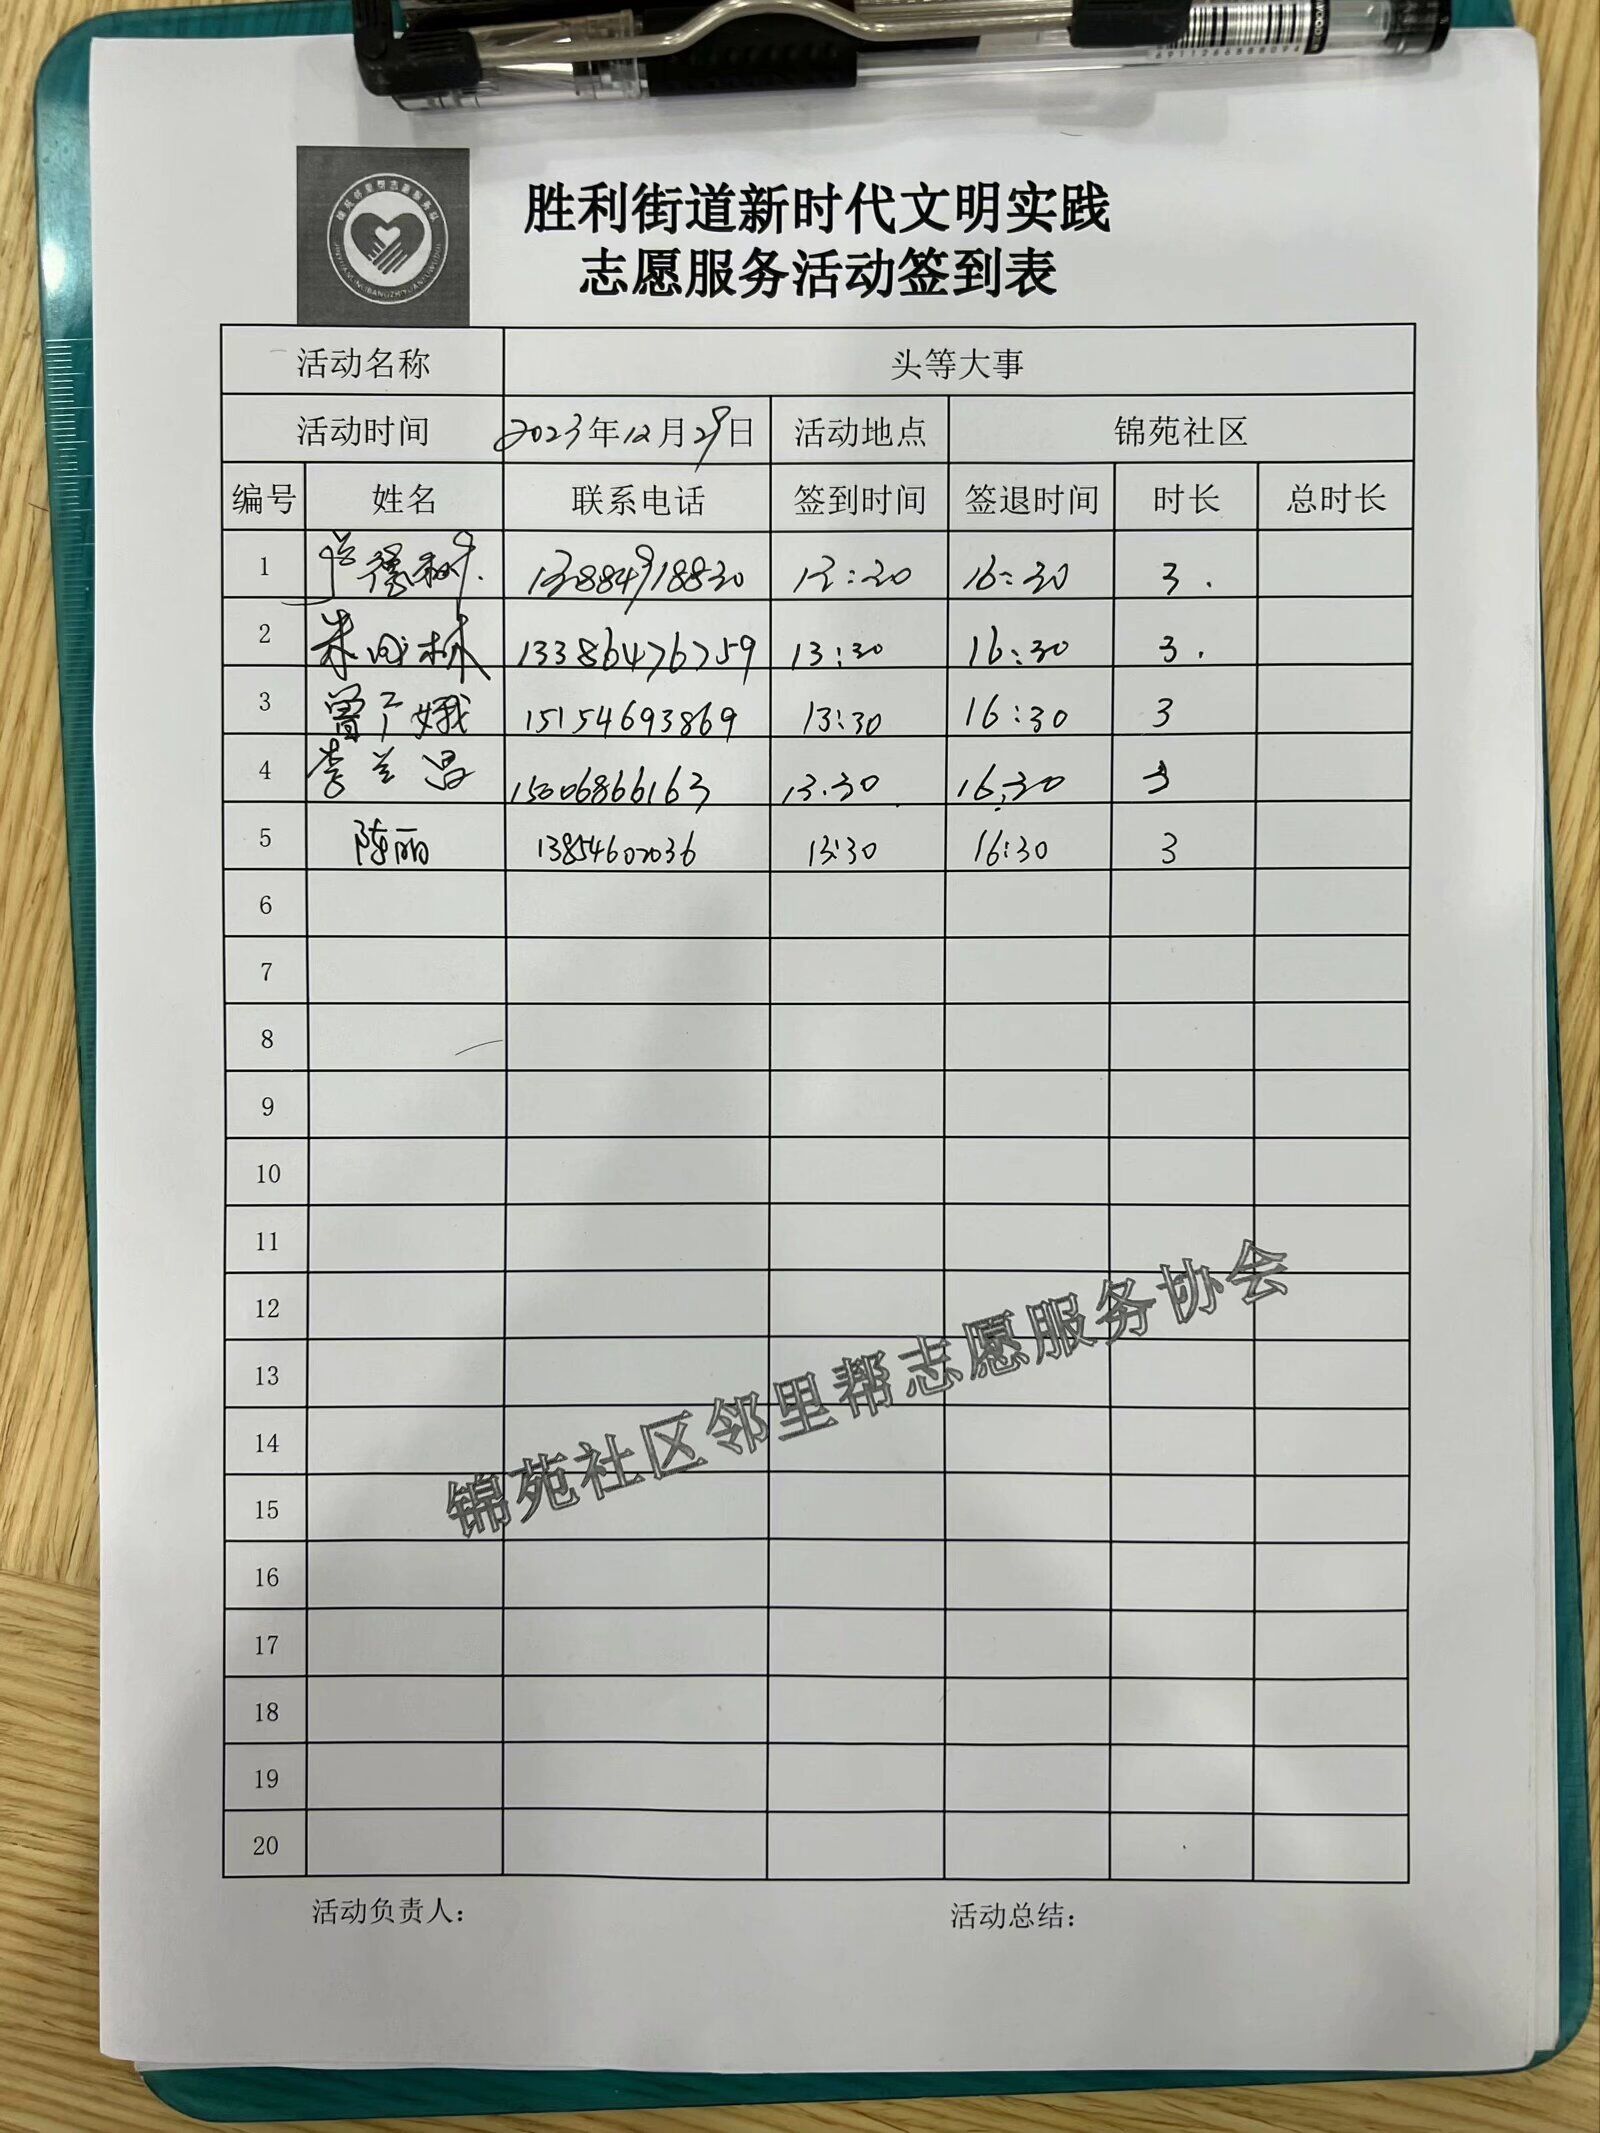 6911266888094
锦苑邻里帮志愿服务队
胜利街道新时代文明实践
志愿服务活动签到表
活动名称 头等大事
活动时间 2023年12月29日 活动地点 锦苑社区
编号 姓名 联系电话 签到时间 签退时间 时长 总时长
1 13884918830 13:30 16:30 3.
2 13386476759 13:30 16:30 3.
3 曾广娥 15154693869 13:30 16:30 3
4 李兰昌 15006866163 13.30 16:30 3
5 陈丽 13854607036 13:30 16:30 3
6
7
8
9
10
11
12
13
14
15
16
17
18
19
20
锦苑社区邻里帮志愿服务协会
活动负责人： 活动总结：